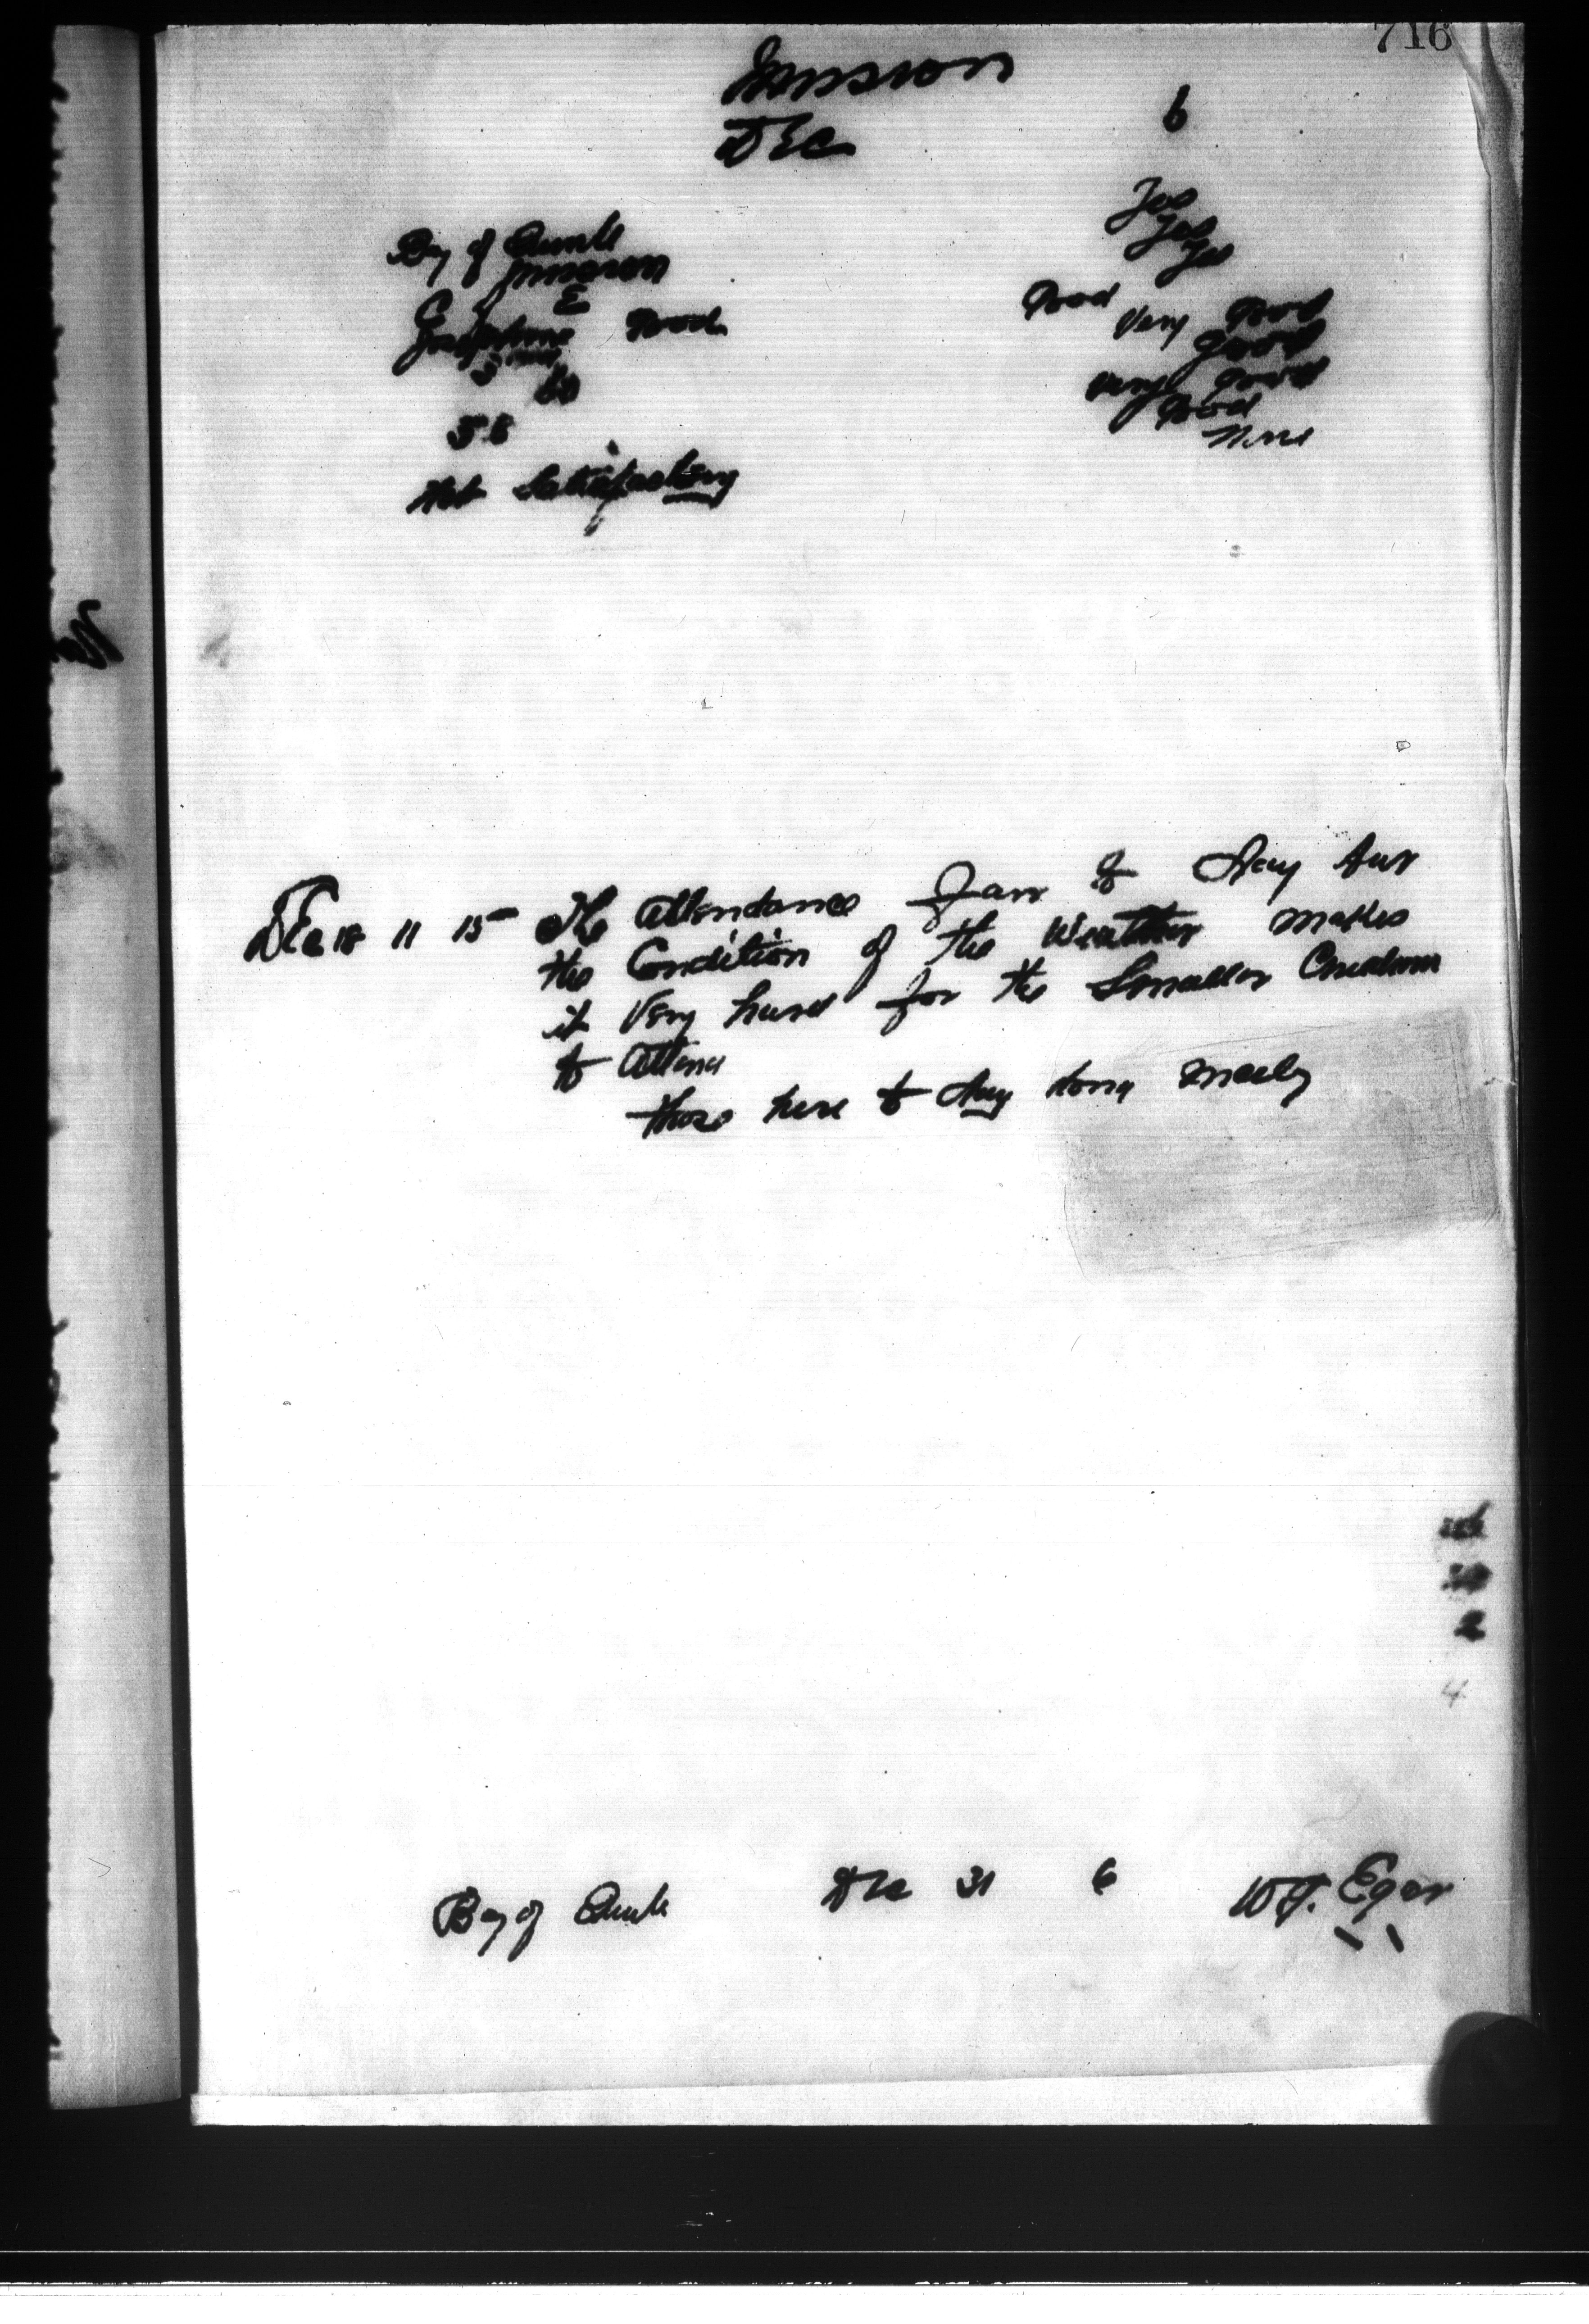 716
Mission
Dec
6
Bay of Quinte
Mission
C of E
Josephine Good
58
Not Satisfactory
Yes
Yes
Yes
Good
Very Good
Good
Very Good
Good
None
Dec 18 11 15 The Attendance Fair to day but
the Condition of the Weather makes
it Very hard for the Smaller Children
to Attend
those here to day doing nicely
2
4
Bay of Quinte Dec 31 6 W J. Egar